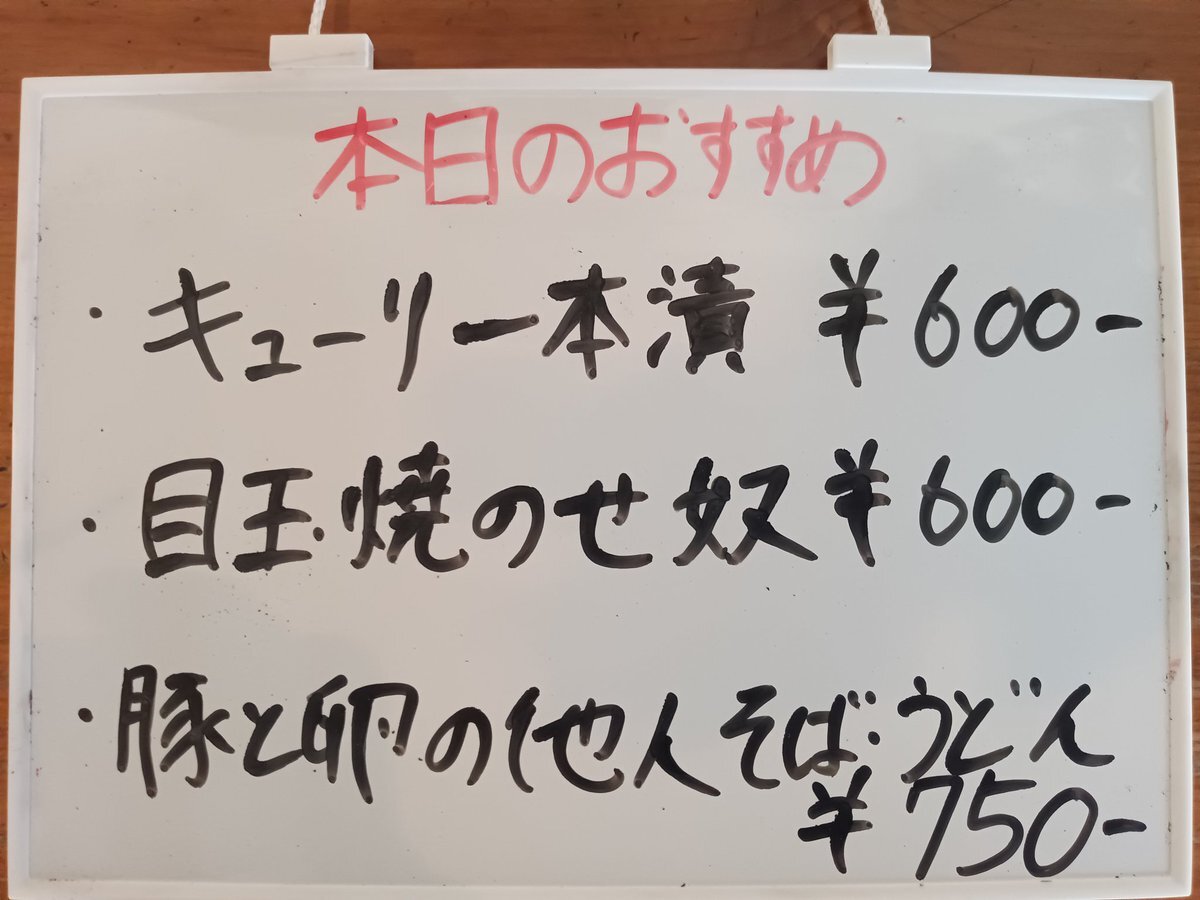 本日のおすすめ
・キューリ一本漬 ¥600-
・目玉焼のせ奴 ¥600-
・豚と卵の他人そば・うどん
¥750-